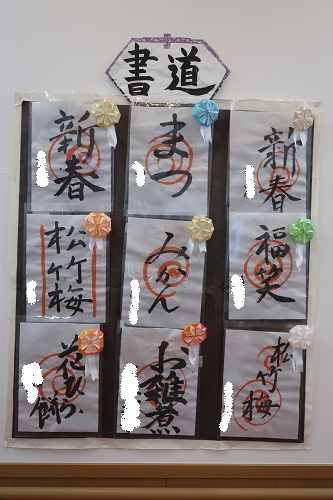 書道
新春
まつ
新春
松竹梅
みかん
福笑
花びら餅
お雑煮
松竹梅